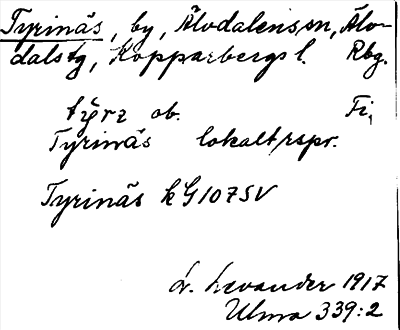 Tyrinäs, by, Älvdalens sn, Älv-
dals tg, Kopparbergs l. Rbg.
ob. Fi,
Tyrinäs lokalt rspr.
Tyrinäs kG 107 SV
L. Levander 1917
Ulma 339:2